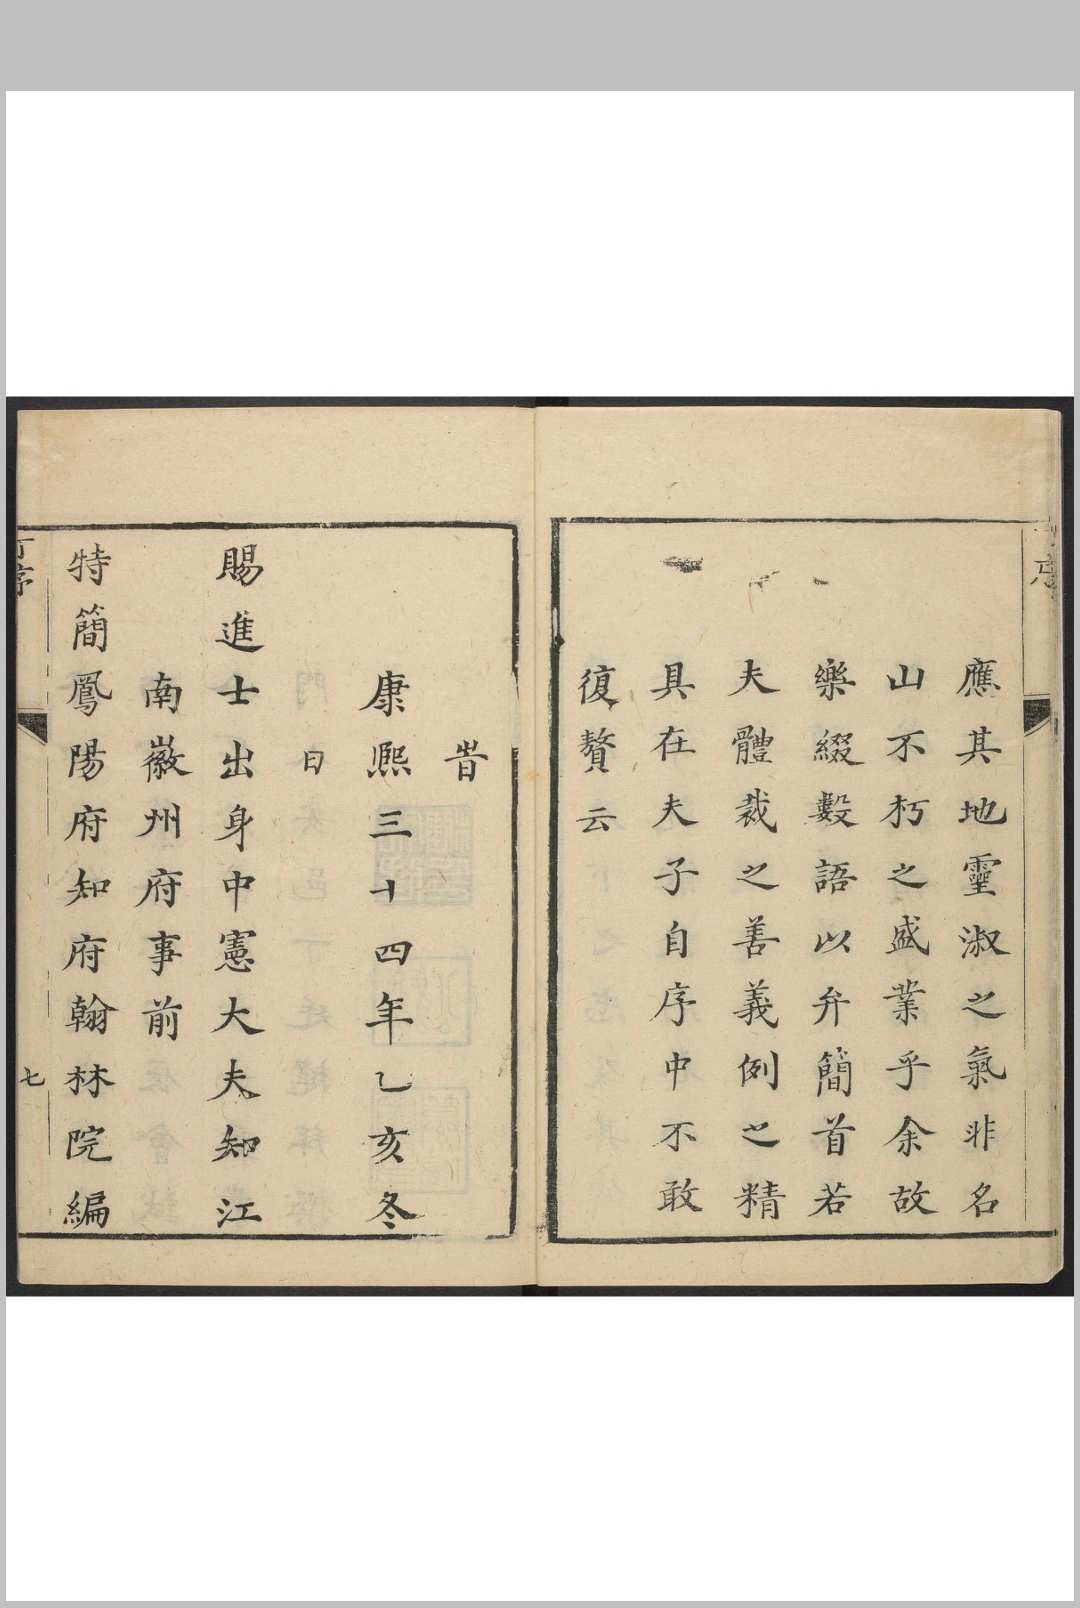 應其地靈淑之氣非名
山不朽之盛業乎余故
樂綴數語以弁簡首若
夫體裁之善義例之精
具在夫子自序中不敢
復贅云
旹
康熙三十四年乙亥冬
日
賜進士出身中憲大夫知江
南徽州府事前
特簡鳳陽府知府翰林院編
丁序
七